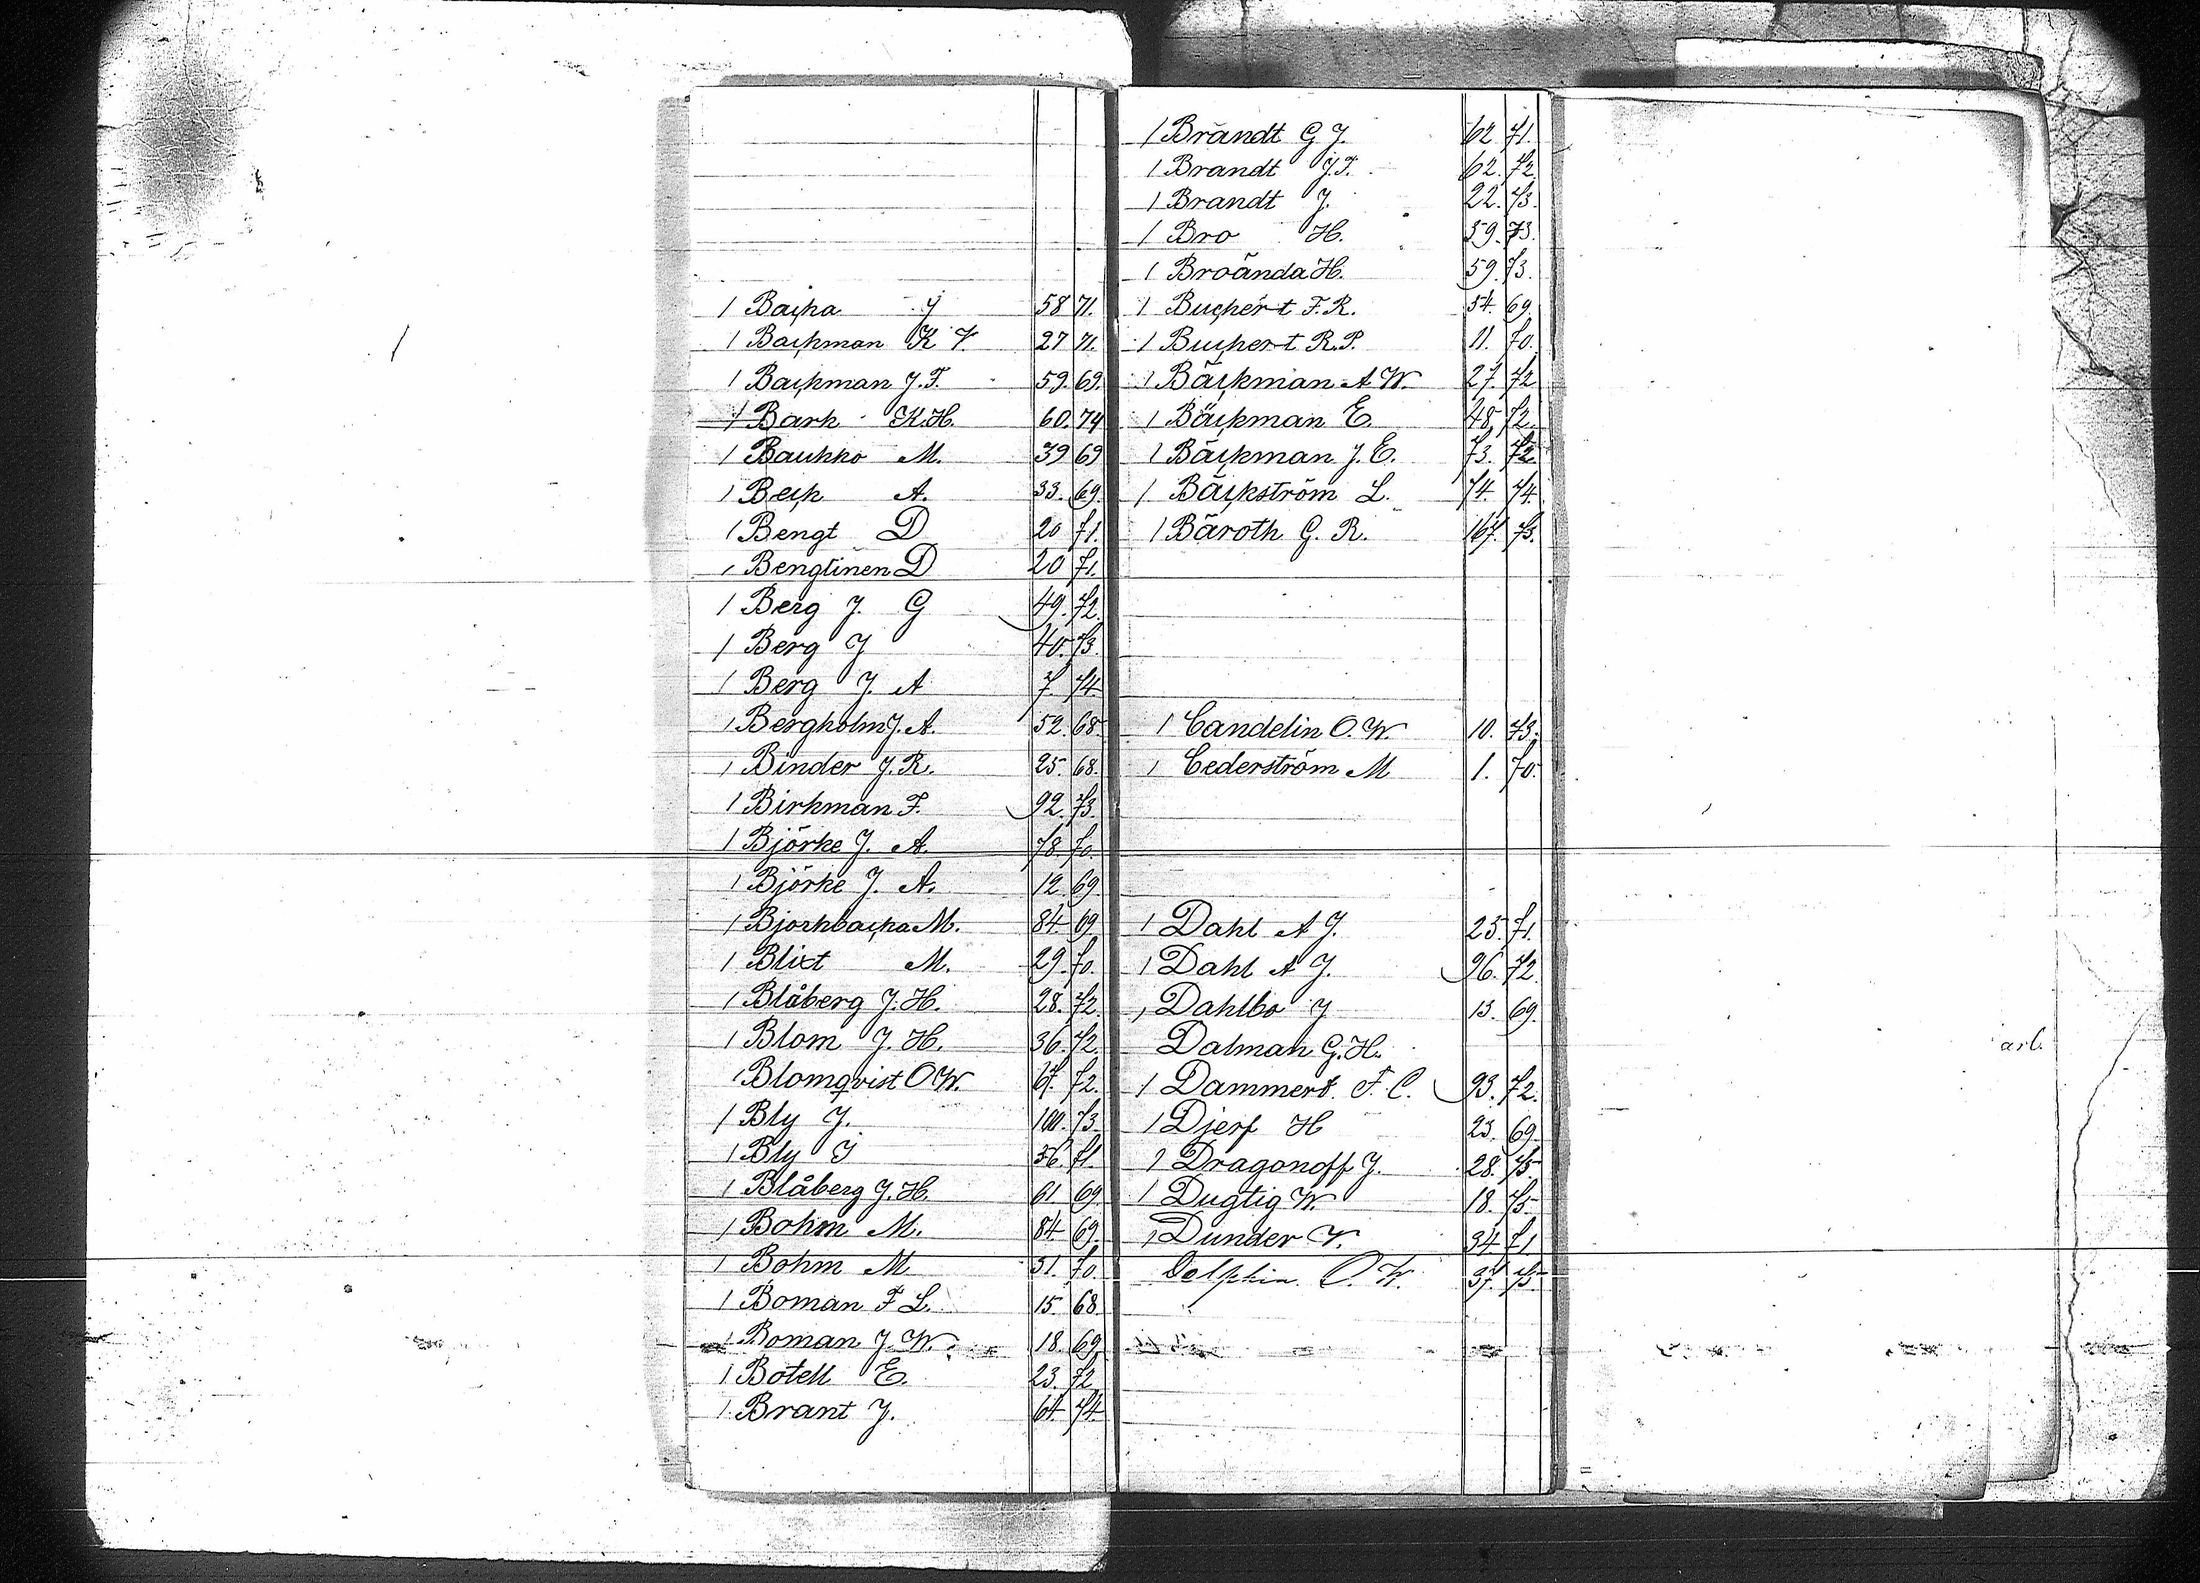 1 Backa J 58 71.
1 Backman K V. 27 71.
1 Backman J. F. 59. 69.
1 Bark K. H. 60. 74
1 Baukko M. 39 69
1 Beck A. 33. 69.
1 Bengt D 20 71.
1 Bengtinen D 20 71.
1 Berg J. G 49. 72.
1 Berg J 40. 73.
1 Berg J. A 7 74.
1 Bergholm J. A. 52. 68.
1 Binder J. R. 25. 68.
1 Birkman F. 92. 73.
1 Björke J. A. 78. 70.
1 Björke J. A. 12. 69.
1 Bjorkbacka M. 84 69
1 Blixt M. 29. 70.
1 Blåberg J. H. 28. 72.
1 Blom J. H. 36. 72.
1 Blomqvist O W. 67. 72.
1 Bly J. 100. 73.
1 Bly J 56. 71.
1 Blåberg J. H. 61 69
1 Bohm M. 84 69.
1 Bohm M 31. 70.
1 Boman F L. 15. 68.
1 Boman J. W. 18. 69.
1 Botell E. 23. 72
1. Brant J. 64. 74.
1 Brandt G J. 62. 71.
1 Brandt J. F. 62. 72.
1 Brandt J. 22. 73.
1 Bro H. 59. 73.
1 Broända H. 59. 73.
1 Buckert F. R. 54. 69.
1 Buckert R. P. 11. 70.
1 Bäckman A W. 27. 72
1 Bäckman E. 48. 72.
1 Bäckman J. E. 73. 72.
1 Bäckström L. 74. 74.
1 Bäroth G. R. 167. 73.
1 Candelin O. W. 10. 73.
1 Cederström M 1. 70.
1 Dahl A J. 25. 71.
1 Dahl A J. 96. 72
1 Dahlbo J 13. 69.
Dalman G. H.
1 Dammert F. C. 93. 72.
1 Djerf H 23. 69.
1 Dragonoff J. 28. 75.
1 Dugtig W. 18. 75.
1 Dunder V. 34 71.
Dolphin O. W. 37. 75.
arb.